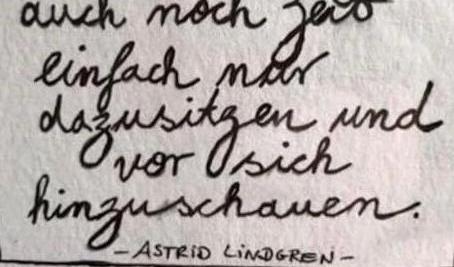 auch noch Zeit
einfach nur
dazusitzen und
vor sich
hinzuschauen.
- ASTRID LINDGREN -